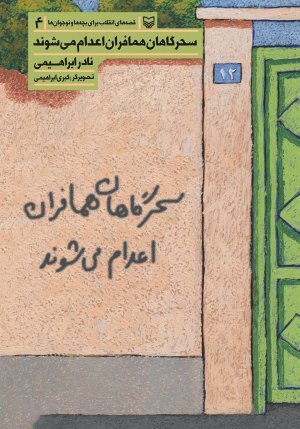 قصه‌های انقلاب برای بچه‌ها و نوجوان‌ها
۴
سحرگاهان همافران اعدام می‌شوند
نادر ابراهیمی
تصویرگر: کبری ابراهیمی
۱۲
سحرگاهان همافران
اعدام می‌شوند